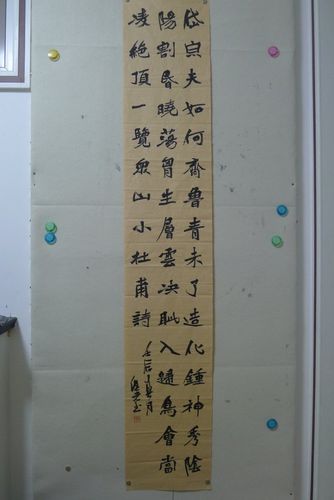 岱宗夫如何齊魯青未了造化鍾神秀陰
陽割昬曉蕩胷生層雲决眦入歸鳥會當
凌絕頂一覽衆山小杜甫詩